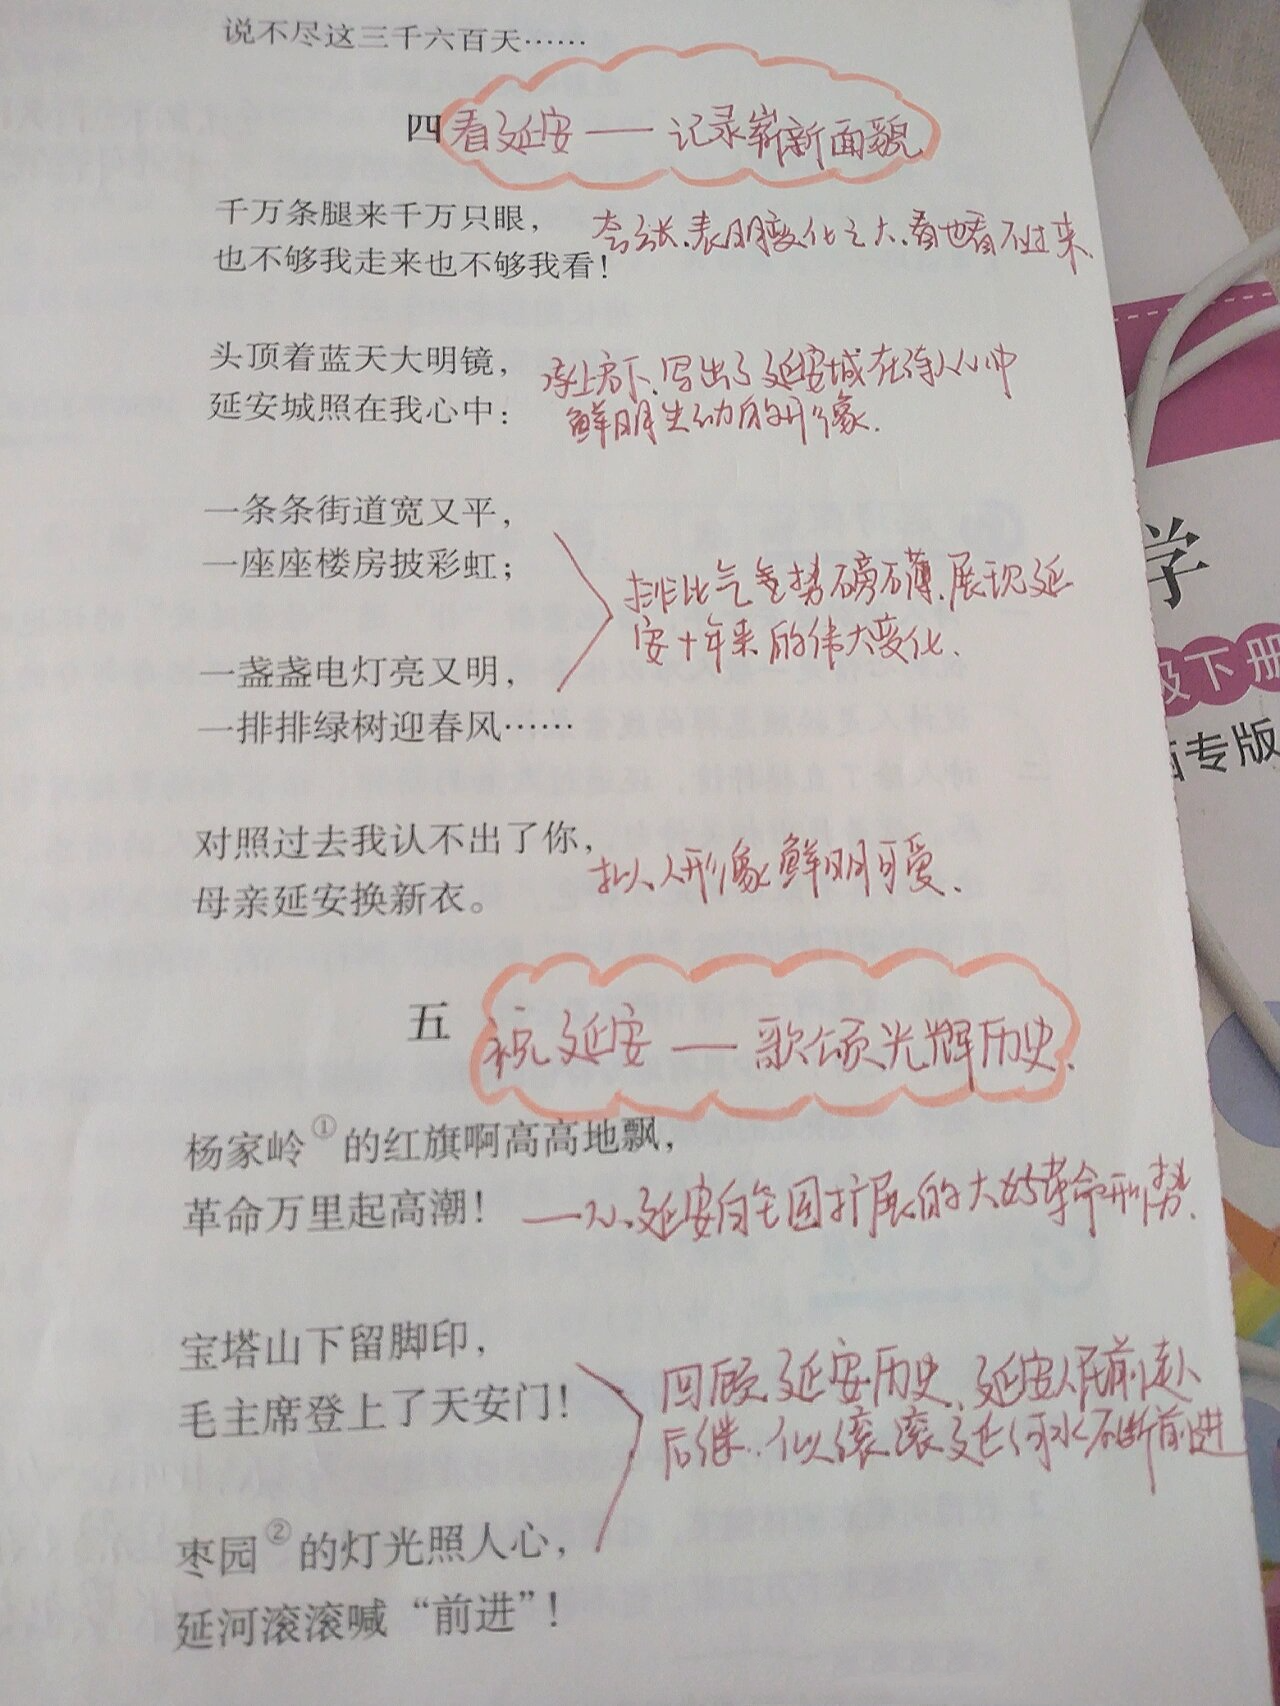 说不尽这三千六百天……
四 看延安 — 记录崭新面貌
千万条腿来千万只眼，
也不够我走来也不够我看！
夸张.表明变化之大.看也看不过来.
头顶着蓝天大明镜，
延安城照在我心中：
承上启下.写出了延安城在诗人心中
鲜明生动的形象.
一条条街道宽又平，
一座座楼房披彩虹；
一盏盏电灯亮又明，
一排排绿树迎春风……
排比气势磅礴.展现延
安十年来的伟大变化.
对照过去我认不出了你，
母亲延安换新衣。
拟人.形象鲜明可爱.
五 祝延安 — 歌颂光辉历史.
杨家岭①的红旗啊高高地飘，
革命万里起高潮！
——从延安向全国扩展的大好革命形势.
宝塔山下留脚印，
毛主席登上了天安门！
枣园②的灯光照人心，
延河滚滚喊“前进”！
回顾延安历史.延安人民前赴
后继.似滚滚延河水不断前进
学
级下册
专版